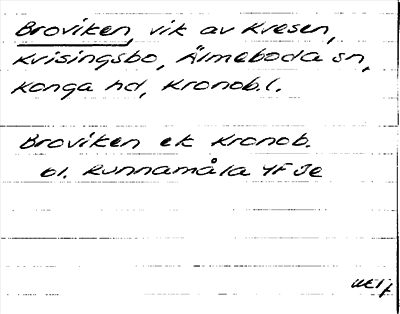 Broviken, vik av Kresen,
Krisingsbo, Älmeboda sn,
Konga hd, Kronob.l.
Broviken ek Kronob.
bl. Runnamåla 4F Je